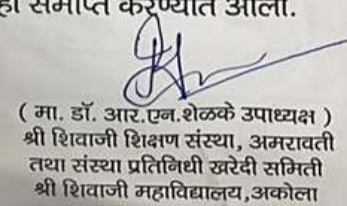 हा समाप्त करण्यात आला.
( मा. डॉ. आर.एन.शेळके उपाध्यक्ष )
श्री शिवाजी शिक्षण संस्था, अमरावती
तथा संस्था प्रतिनिधी खरेदी समिती
श्री शिवाजी महाविद्यालय,अकोला